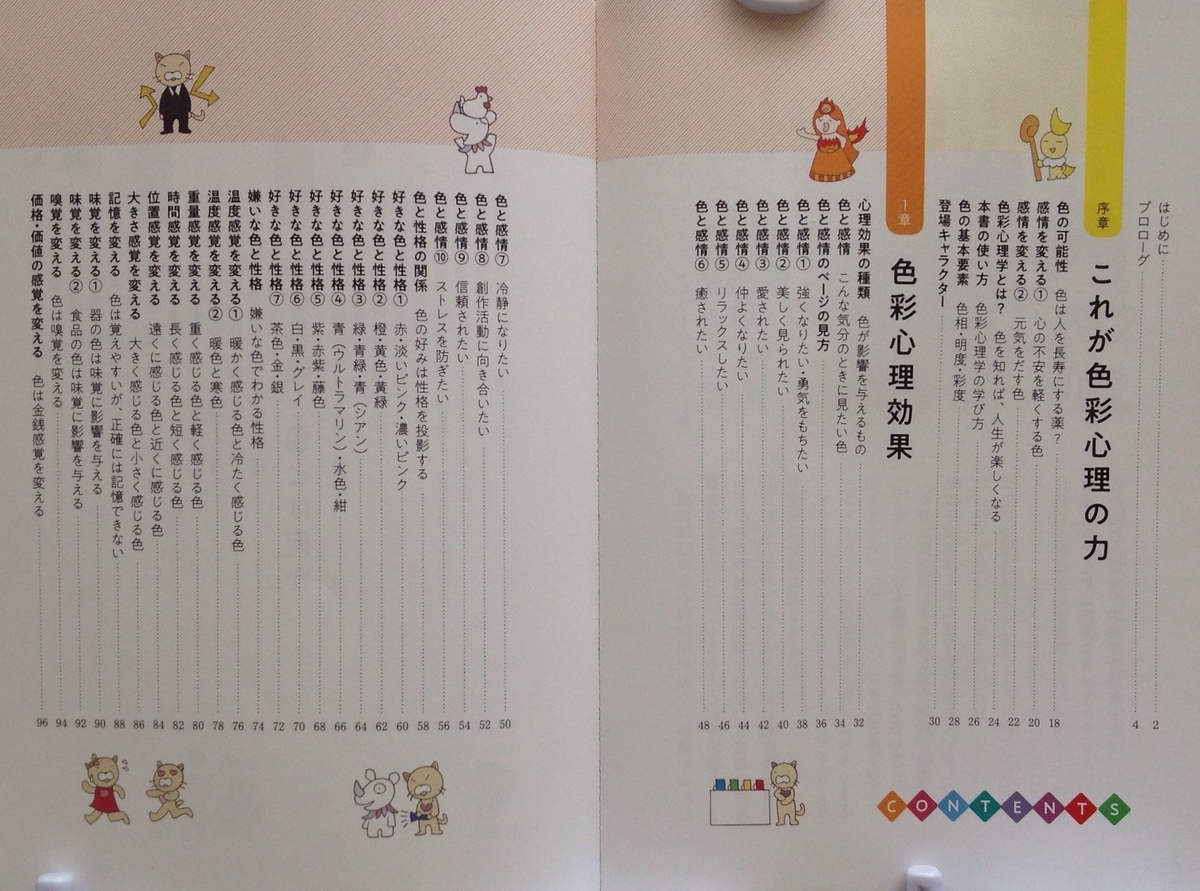 はじめに 2
プロローグ 4
序章
これが色彩心理の力
色の可能性 色は人を長寿にする薬? 18
感情を変える① 心の不安を軽くする色 20
感情を変える② 元気をだす色 22
色彩心理学とは? 色を知れば、人生が楽しくなる 24
本書の使い方 色彩心理学の学び方 26
色の基本要素 色相・明度・彩度 28
登場キャラクター 30
1章
色彩心理効果
心理効果の種類 色が影響を与えるもの 32
色と感情 こんな気分のときに見たい色 34
色と感情のページの見方 36
色と感情① 強くなりたい・勇気をもちたい 38
色と感情② 美しく見られたい 40
色と感情③ 愛されたい 42
色と感情④ 仲よくなりたい 44
色と感情⑤ リラックスしたい 46
色と感情⑥ 癒されたい 48
CONTENTS
色と感情⑦ 冷静になりたい 50
色と感情⑧ 創作活動に向き合いたい 52
色と感情⑨ 信頼されたい 54
色と感情⑩ ストレスを防ぎたい 56
色と性格の関係 色の好みは性格を投影する 58
好きな色と性格① 赤・淡いピンク・濃いピンク 60
好きな色と性格② 橙・黄色・黄緑 62
好きな色と性格③ 緑・青緑・青(シアン) 64
好きな色と性格④ 青(ウルトラマリン)・水色・紺 66
好きな色と性格⑤ 紫・赤紫・藤色 68
好きな色と性格⑥ 白・黒・グレイ 70
好きな色と性格⑦ 茶色・金・銀 72
嫌いな色と性格 嫌いな色でわかる性格 74
温度感覚を変える① 暖かく感じる色と冷たく感じる色 76
温度感覚を変える② 暖色と寒色 78
重量感覚を変える 重く感じる色と軽く感じる色 80
時間感覚を変える 長く感じる色と短く感じる色 82
位置感覚を変える 遠くに感じる色と近くに感じる色 84
大きさ感覚を変える 大きく感じる色と小さく感じる色 86
記憶を変える 色は覚えやすいが、正確には記憶できない 88
味覚を変える① 器の色は味覚に影響を与える 90
味覚を変える② 食品の色は味覚に影響を与える 92
嗅覚を変える 色は嗅覚を変える 94
価格・価値の感覚を変える 色は金銭感覚を変える 96